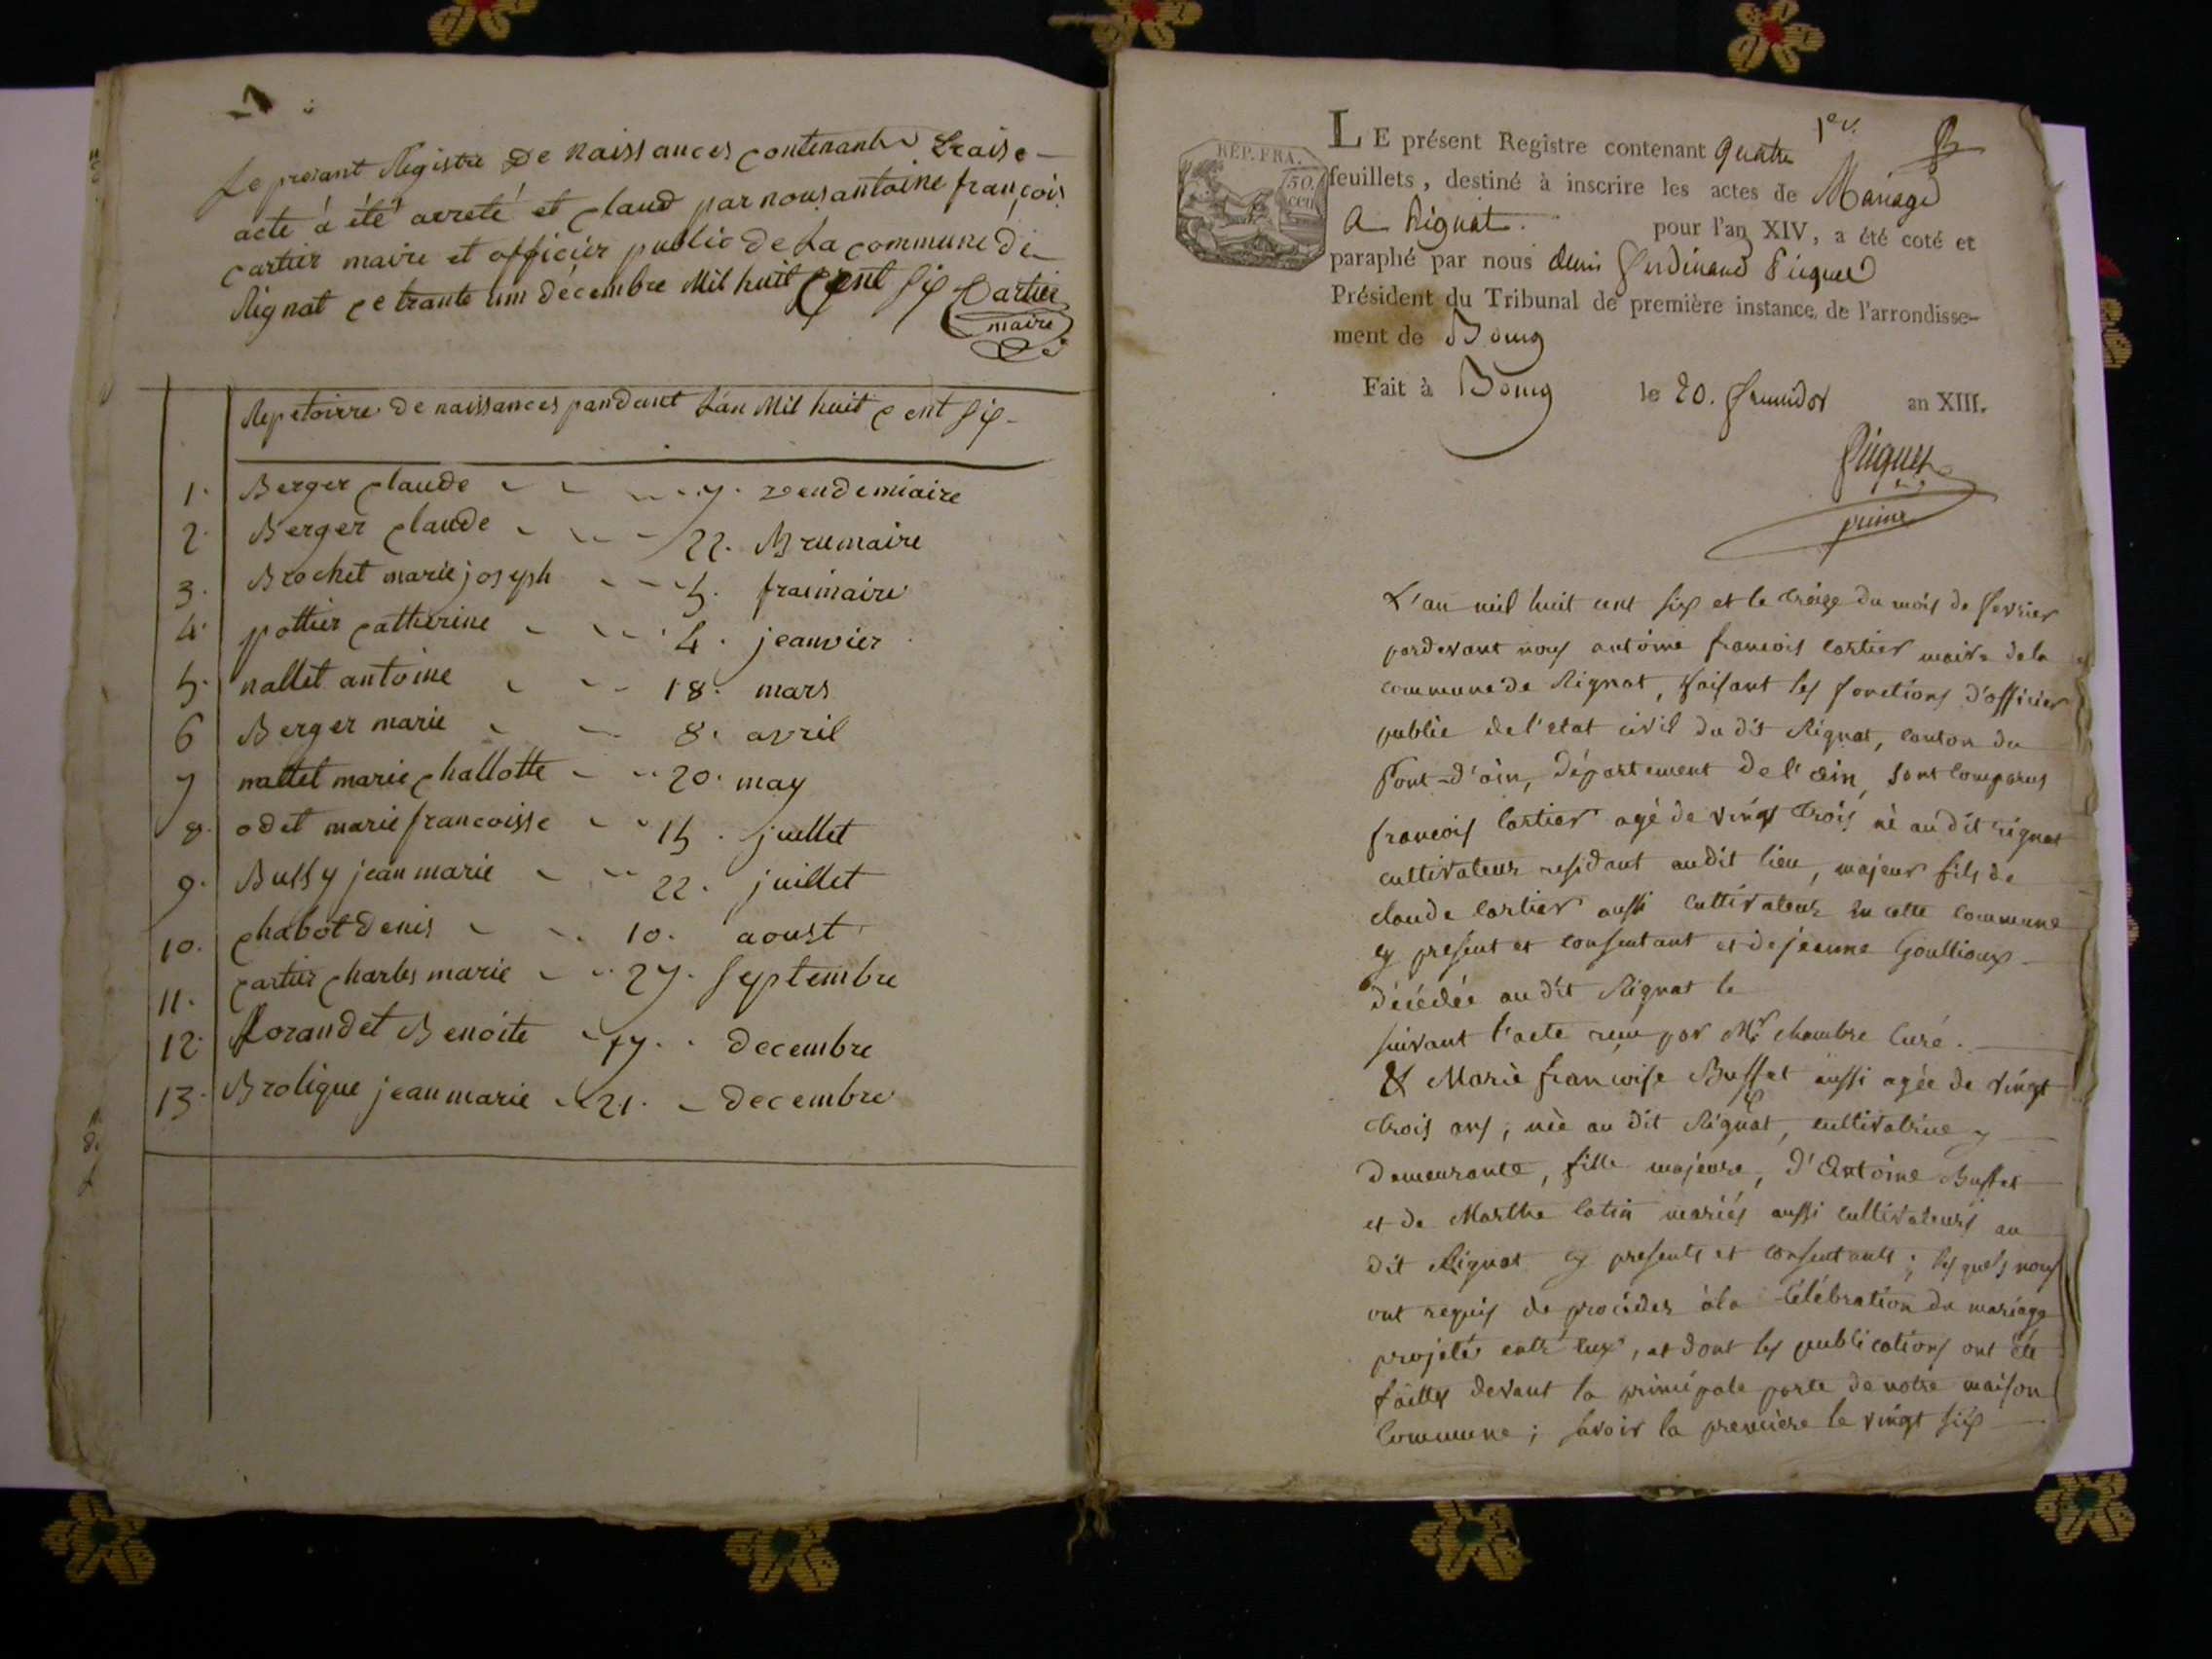 Le present Registre De Naissances contenant traise
acte a été arreté et claud par nous antoine françois
cartier maire et officiér public de La commune de
Rignat ce trante un décembre Mil huit cent six Cartier
maire
Repetoirre De naissances pandant L'an Mil huit cent six
1. Berger claude 7. vendemiaire
2. Berger claude 22. Brumaire
3. Brochet marie joseph 5. fraimaire
4. pottier catherine 4. jeanvier
5. nallet antoine 18. mars
6 Berger marie 8. avril
7 mallet marie challotte 20. may
8. odet marie francoisse 15. juillet
9. Bussy jean marie 22. juillet
10. chabot denis 10. aoust
11. cartier charles marie 27. Septembre
12. Morandet Benoite 17. decembre
13. Brolique jean marie 21. decembre
1er.
RÉP. FRA.
50.
cen
LE présent Registre contenant quatre
feuillets, destiné à inscrire les actes de Mariage
A Rignat. pour l'an XIV, a été coté et
paraphé par nous denis ferdinand Picquet
Président du Tribunal de première instance, de l'arrondisse-
ment de Bourg
Fait à Bourg le 20. fructidor an XIII.
Picquet
L'an mil huit cent six et le treize du mois de fevrier
pardevant nous antoine francois cartier maire de la
commune de Rignat, faisant les fonctions d'officier
public de l'etat civil du dit Rignat, canton du
Pont-d'ain, département de l'ain, sont comparus
francois Cartier agé de vingt trois né au dit rignat
cultivateur residant audit lieu, majeur fils de
claude Cartier aussi cultivateur en cette commune
cy present et consentant et de jeanne Goullioux
décédée au dit Rignat le
suivant l'acte reçu par Mr. chambre curé.
& Marie françoise Buffet aussi agée de vingt
trois ans, née au dit Rignat, cultivatrice y
demeurante, fille majeure, d'Antoine Buffet
et de Marthe Catin mariés aussi cultivateurs au
dit Rignat cy presents et consentants; lesquels nous
ont requis de procéder à la célébration du mariage
projeté entr'eux, et dont les publications ont été
faittes devant la principale porte de notre maison
Commune; savoir la premiere le vingt six